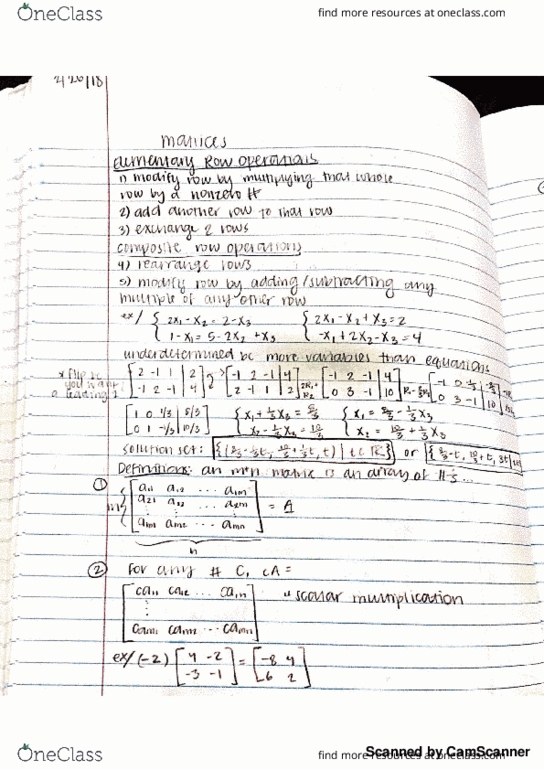 OneClass
find more resources at oneclass.com
2/26/18
matrices
elementary Row operations
1) modify row by multiplying that whole
row by a nonzero #
2) add another row to that row
3) exchange 2 rows
composite row operations
4) rearrange rows
5) modify row by adding/subtracting any
multiple of any other row
ex/ { 2x₁-x₂ = 2-x₃   { 2x₁-x₂+x₃=2
1-x₁=5-2x₂+x₃   -x₁+2x₂-x₃=4
underdetermined bc more variables than equations
*flip bc [2 -1 1 | 2] [-1 2 -1 | 4] [-1 2 -1 | 4]
you want [-1 2 -1 | 4] [2 -1 1 | 2] [0 3 -1 | 10]
a leading 1
[1 0 1/3 | 8/3] { x₁+⅓x₃=8/3 { x₁=8/3-⅓x₃
[0 1 -1/3 | 10/3] x₂-⅓x₃=10/3 x₂=10/3+⅓x₃
solution set: {(8/3-⅓t, 10/3+⅓t, t) | t∈ℝ} or
Definitions: an m×n matrix is an array of #s...
① m{ [a₁₁ a₁₂ ... a₁ₙ
a₂₁ a₂₂ ... a₂ₙ
⋮
aₘ₁ aₘ₂ ... aₘₙ] = A
n
② For any # c, cA=
[ca₁₁ ca₁₂ ... ca₁ₙ
⋮ "scalar multiplication
caₘ₁ caₘ₂ ... caₘₙ]
ex/ (-2) [4 -2] = [-8 4]
[-3 -1] [6 2]
OneClass
find more resources at oneclass.com
Scanned by CamScanner